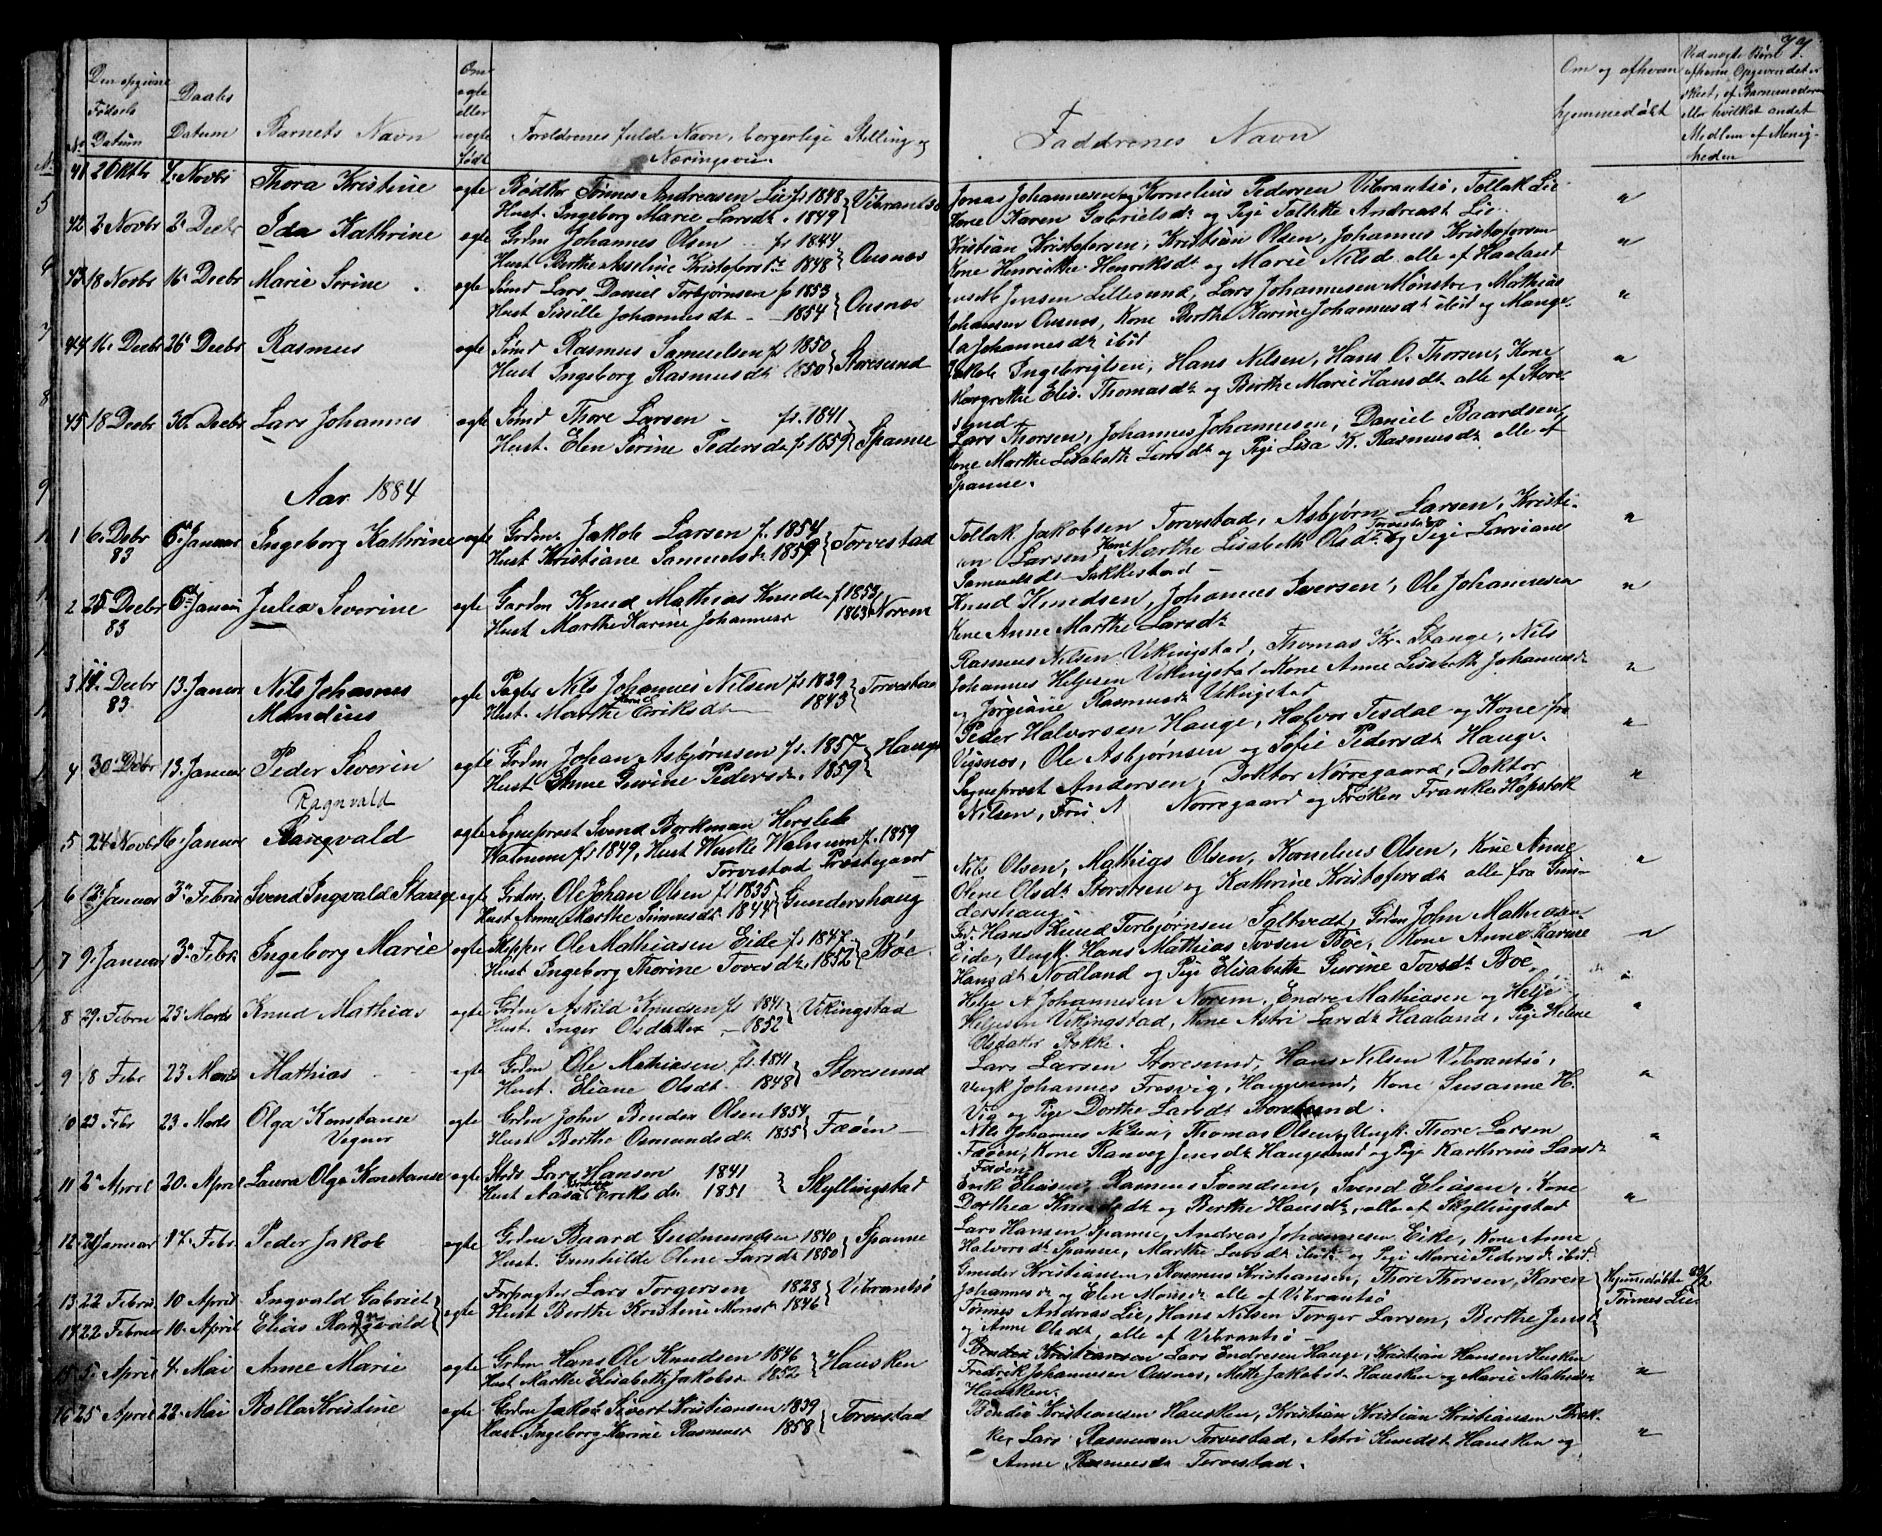 77.
No
Den opgivne Fødsels Datum
Daabs Datum
Barnets Navn
Om egte eller uegte født
Foreldrenes fulde Navn, borgerlige Stilling og
Næringsvei.
Faddrenes Navn
Om og af hvem
hjemmedøbt
Ved uegte Børn
af hvem Opgivendet er
skeet, af Barnemoderen
eller hvilket andet
Medlem af Menig-
heden
41 2 Oktbr 4. Novbr Thora Kristine egte Bødker Tønnes Andreasen Lie f. 1848 Vibrantsø
Hust. Ingeborg Marie Larsdt. 1849
Jonas Johannesen og Kornelius Pedersen Vibrantsø, Tollak Lie
Kone Karen Gabrielsdt og Pige Tallette Andreasdt Lie.
42 2 Novbr 2. Decbr Ida Kathrine egte Grdm Johannes Olsen f. 1844 Ousnes
Hust. Berthe Asseline Kristofersdt 1848
Kristian Kristofersen, Kristian Olsen, Johannes Kristofersen
Kone Henriette Henriksdt og Marie Nilsd. alle af Haaland
43 18 Novbr 16. Decbr Marie Serine egte Smd Lars Daniel Torbjørnsen f. 1853 Ousnes
Hust Sissille Johannesdt 1854
Jensen Lillesund, Lars Johannesen Mønstre, Mathias
Johansen Ousnes, Kone Berthe Karine Johannesdt ibid og Mange-
la Johannesdt ibid
44 16. Decbr 26 Decbr Rasmus egte Smd Rasmus Samuelsen f. 1850 Storesund
Hust Ingeborg Rasmusdt. 1850
Jakob Ingebrigtsen, Hans Nilsen, Hans O. Thorsen, Kone
Margrethe Elis. Thomasdt og Birthe Marie Hansdt alle af Store-
sund
45 18 Decbr 30. Decbr Lars Johannes egte Smd Thore Larsen f. 1841 Spanne
Hust. Elen Serine Pedersdt f. 1859
Lars Thorsen, Johannes Johannesen, Daniel Baardsen,
Kone Marthe Lisabeth Larsdt og Pige Lisa K. Rasmusdt alle af
Spanne.
Aar 1884
1 6. Decbr 83 6. Januar Ingeborg Kathrine egte Grdm. Jakob Larsen f. 1854 Torvestad
Hust Kristiane Samuelsdt 1859
Tollak Jakobsen Torvestad, Asbjørn Larsen, Kristi-
an Larsen, Kone Marthe Lisabeth Olsdt Torvestad og Pige Larriane
Samuelsdt Sukkestad
2 25 Decbr 83 6. Januar Julea Severine egte Gardm Knud Mathias Knuds. f. 1853 Norem
Hust Marthe Karine Johannesd 1863
Knud Knudsen, Johannes Iversen, Ole Johannesen
Kone Anne Marthe Larsdt
3 11. Decbr 83 13. Januar Nils Johannes
Mandius egte Pagter Nils Johannes Nilsen f. 1829 Torvestad
Hust. Marthe Karine Eriksdt 1843
Rasmus Nilsen Vikingstad, Thomas Kr. Stange, Nils
Johannes Heljesen Vikingstad, Kone Anne Lisabeth Johannesdt
og Jørgiane Rasmusdt Vikingstad
4 30 Decbr 13. Januar Peder Severin egte Grdm Johan Asbjørnsen f. 1857 Hauge
Hust Anne Gurine Pedersdt. 1859
Peder Halvorsen Hauge, Halvor Tesdal og Kone fra
Vigsnes, Ole Asbjørnsen og Sofie Pedersdt Hauge.
5 24 Novbr 16. Januar Ragnvald
Rangvald egte Sogneprest Svend Borkman Hersleb
Walnum f. 1849, Hust Wenke Walnum f. 1859
Torvestad Prestegaard
Sogneprest Andersen, Doktor Nørregaard, Doktor
Nilsen, Fru N Nørregaard og Frøken Franke Hopstok
6 12. Januar 3. Febru Svend Ingvald Stange egte Grdm. Ole Johan Olsen f. 1835 Gundershaug
Hust Anne Marthe Simmesdt 1844
Nils Olsen, Mathias Olsen, Kornelius Olsen, Kone Anne
Oline Olsdt Storsteen og Kathrine Kristofersdt alle fra Gun-
dershaug
7 9. Januar 3. Febr. Ingeborg Marie egte Skipper Ole Mathiasen Eide f. 1847 Bøe
Hust Ingeborg Thorine Tovesdt. 1852
Hans Knud Torbjørnsen Saltvedt, Grdm John Mathiasen
Eide, Ungk. Hans Mathias Tovsen Bøe, Kone Anne Karine
Hansdt Nodland og Pige Elisabeth Gurine Tovsdt Bøe.
8 29. Febru 23. Marts Knud Mathias egte Grdm Askild Knudsen f. 1841 Vikingstad
Hust. Inger Olsdatter 1852
Helje N Johannesen Norem, Endre Mathiasen og Helje
Heljesen Vikingstad, Kone Astri Larsdt Haaland, Pige Helene
Olsdater Stokke.
9 8 Febr 23 Marts Mathias egte Grdm Ole Mathiasen f. 1841 Storesund
Hust. Eliane Olsdt. 1848
Lars Larsen Storesund, Hans Nilsen Vibrantsø,
Ungk Johannes Fresvig, Haugesund, Kone Susanne H.
Vig og Pige Dorthe Larsdt Storesund.
10 23 Febr 23. Marts Olga Konstanse
Vegner egte Grdm John Bendix Olsen 1854 Fæøen
Hust Berthe Osmundsdt 1855
Nils Johannes Nilsen, Thomas Olsen, Ungk. Thore Larsen
Fæøen, Kone Ranveg Jensdt Haugesund og Pige Karthrine Larsdt
Fæøen
11 2 April 20. April Laura Olga Konstanse egte Strds Lars Hansen 1841 Skyllingstad
Hust Aasa Eriksdt. 1851
Erik Eliasen, Rasmus Svendsen, Svend Eliasen, Kone
Dorthea Knudsdt og Berthe Hansdt, alle af Skyllingstad
12 20 Januar 17. Febr. Peder Jakob egte Grdm Baard Gudmundsen 1840 Spanne
Hust. Gunhilde Oline Larsdt 1850
Lars Hansen Spanne, Andreas Johannesen Eike, Kone Anne
Halvorsdt Spanne, Marthe Larsdt ibid. og Pige Marie Pedersdt ibid.
13 22 Febru 10 April Ingvald Gabriel egte Forpagter Lars Torgersen 1828 Vibrantsø
Hust Berthe Kristine Monsd 1846
Gunder Kristiansen, Rasmus Kristiansen, Thore Thorsen, Karen
Johannesdt og Elen Monsdt alle af Vibrantsø
Hjemmedøbte 23/2
Tønnes Lie
14 22 Februar 10. April Elias Rangvald
Tønnes Andreas Lie, Hans Nilsen Torger Larsen, Berthe Jensdt
og Anne Olsdt, alle af Vibrantsø
15 5. April 4. Mai Anne Marie egte Grdm Hans Ole Knudsen 1846 Hausken
Hust Marthe Elisabeth Jakobsd 1852
Bendix Kristiansen Lars Endresen Hauge, Kristian Hansen Hausken
Fredrik Johannesen Ousnes, Mette Jakobsd. Hausken og Marie Mathisdt
Hausken.
16 25 April 22. Mai Bolla Kristine egte Grdm Jakob Sivert Kristiansen 1839 Torvestad
Hust. Ingeborg Karine Rasmusd 1858
Bendix Kristiansen Hausken, Kristian Kristian Kristiansen Stok-
ke, Lars Rasmussen Torvestad, Astri Knudsdt Hausken og
Anne Rasmusdt Torvestad.